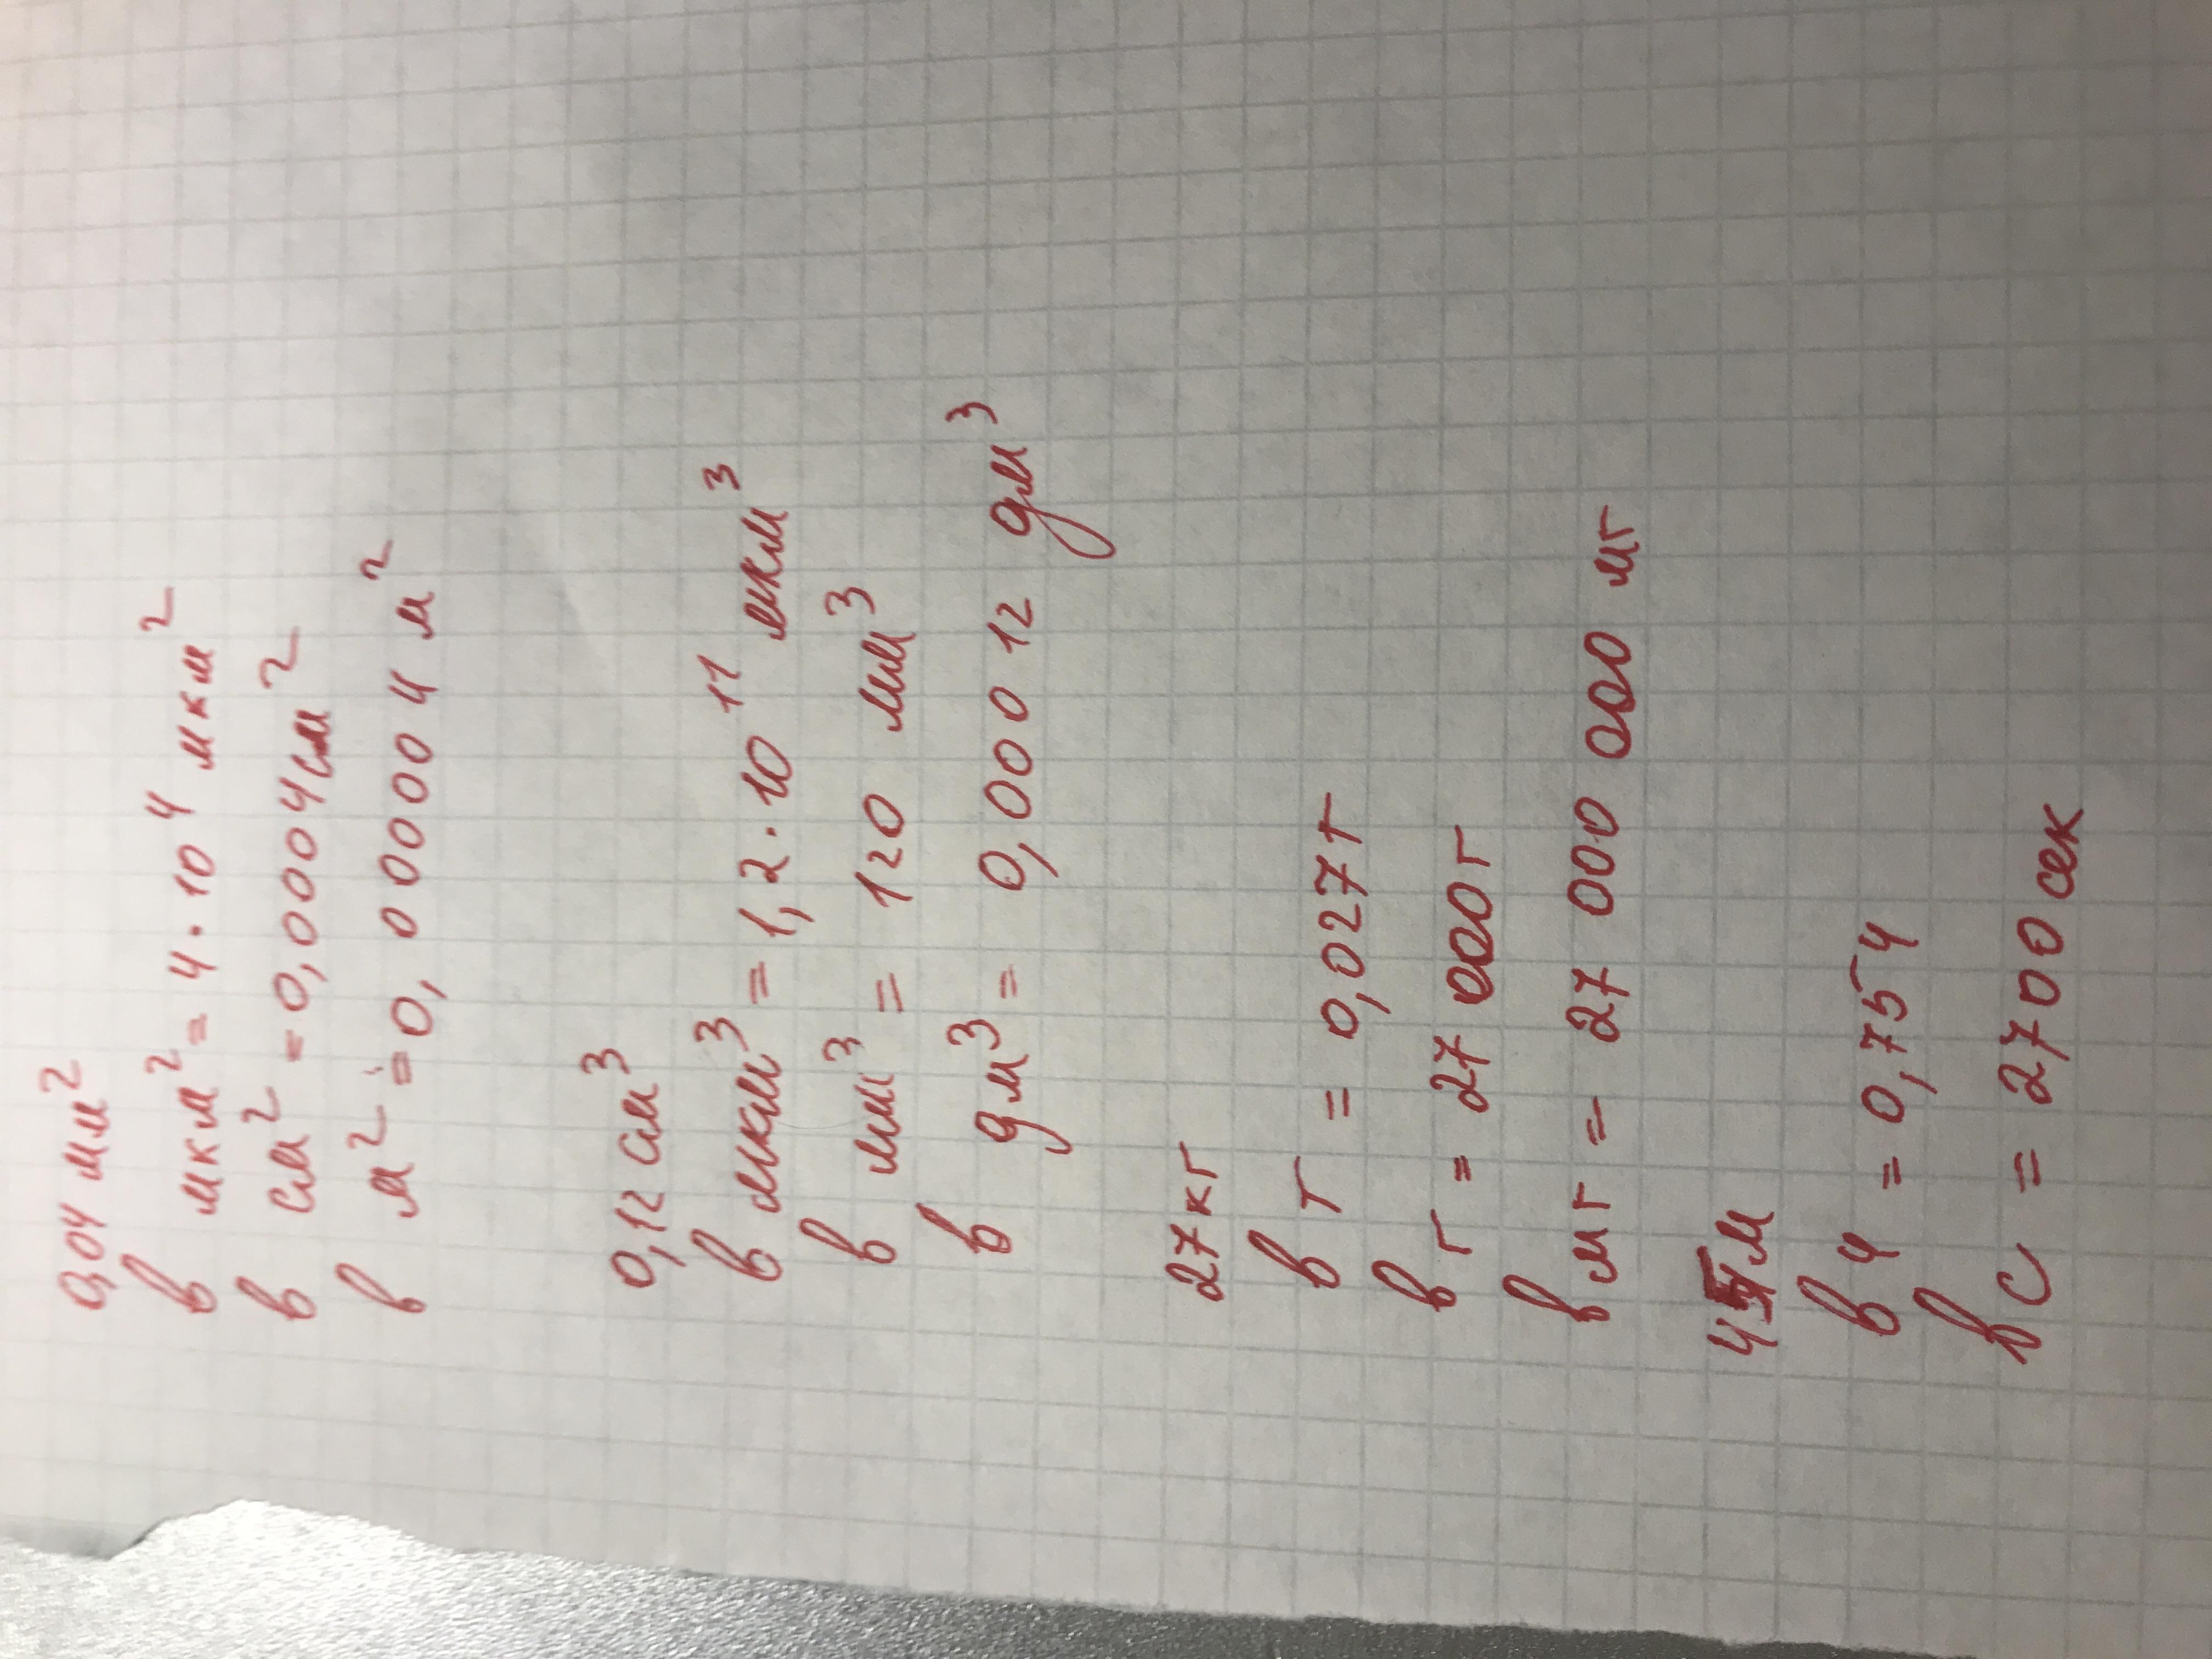 0,04 мм²
в мкм² = 4 · 10⁴ мкм²
в см² = 0,0004 см²
в м² = 0,0000004 м²
0,12 см³
в мкм³ = 1,2 · 10¹¹ мкм³
в мм³ = 120 мм³
в дм³ = 0,00012 дм³
27 кг
в т = 0,027т
в г = 27 000г
в мг = 27 000 000 мг
45м
в ч = 0,75ч
в с = 2700 сек